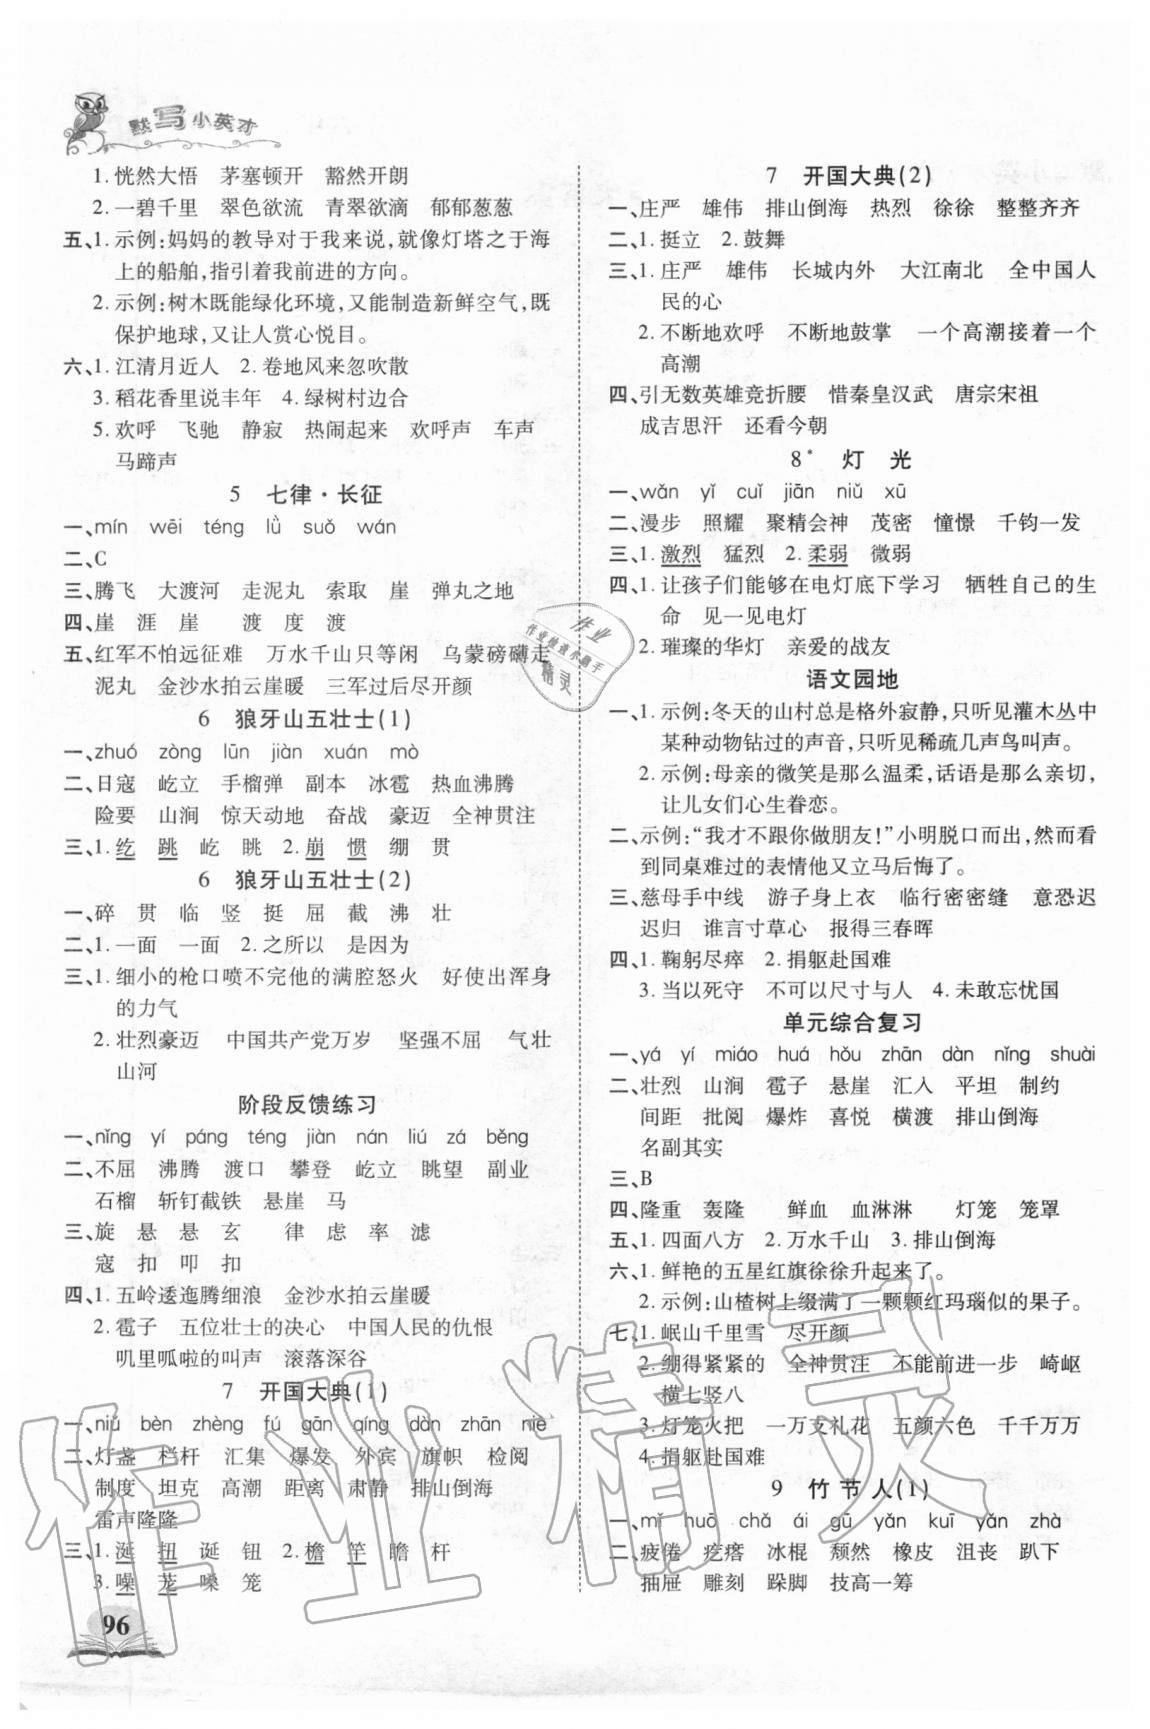 默写小英才
1. 恍然大悟 茅塞顿开 豁然开朗
2. 一碧千里 翠色欲流 青翠欲滴 郁郁葱葱
五、1. 示例:妈妈的教导对于我来说,就像灯塔之于海
上的船舶,指引着我前进的方向。
2. 示例:树木既能绿化环境,又能制造新鲜空气,既
保护地球,又让人赏心悦目。
六、1. 江清月近人 2. 卷地风来忽吹散
3. 稻花香里说丰年 4. 绿树村边合
5. 欢呼 飞驰 静寂 热闹起来 欢呼声 车声
马蹄声
5 七律·长征
一、mín wēi téng lǜ suǒ wán
二、C
三、腾飞 大渡河 走泥丸 索取 崖 弹丸之地
四、崖 涯 崖 渡 度 渡
五、红军不怕远征难 万水千山只等闲 乌蒙磅礴走
泥丸 金沙水拍云崖暖 三军过后尽开颜
6 狼牙山五壮士(1)
一、zhuó zòng lūn jiàn xuán mò
二、日寇 屹立 手榴弹 副本 冰雹 热血沸腾
险要 山涧 惊天动地 奋战 豪迈 全神贯注
三、1. 纥 跳 屹 眺 2. 崩 惯 绷 贯
6 狼牙山五壮士(2)
一、碎 贯 临 竖 挺 屈 截 沸 壮
二、1. 一面 一面 2. 之所以 是因为
三、1. 细小的枪口喷不完他的满腔怒火 好使出浑身
的力气
2. 壮烈豪迈 中国共产党万岁 坚强不屈 气壮
山河
阶段反馈练习
一、nǐng yí páng téng jiàn nán liú zá běng
二、不屈 沸腾 渡口 攀登 屹立 眺望 副业
石榴 斩钉截铁 悬崖 马
三、旋 悬 悬 玄 律 虑 率 滤
寇 扣 叩 扣
四、1. 五岭逶迤腾细浪 金沙水拍云崖暖
2. 雹子 五位壮士的决心 中国人民的仇恨
叽里呱啦的叫声 滚落深谷
7 开国大典(1)
一、niǔ bèn zhèng fú gān qíng dàn zhān niè
二、灯盏 栏杆 汇集 爆发 外宾 旗帜 检阅
制度 坦克 高潮 距离 肃静 排山倒海
雷声隆隆
三、1. 涎 扭 诞 钮 2. 檐 竿 瞻 杆
3. 噪 茏 嗓 笼
96
7 开国大典(2)
一、庄严 雄伟 排山倒海 热烈 徐徐 整整齐齐
二、1. 挺立 2. 鼓舞
三、1. 庄严 雄伟 长城内外 大江南北 全中国人
民的心
2. 不断地欢呼 不断地鼓掌 一个高潮接着一个
高潮
四、引无数英雄竞折腰 惜秦皇汉武 唐宗宋祖
成吉思汗 还看今朝
8* 灯 光
一、wǎn yǐ cuǐ jiān niǔ xū
二、漫步 照耀 聚精会神 茂密 憧憬 千钧一发
三、1. 激烈 猛烈 2. 柔弱 微弱
四、1. 让孩子们能够在电灯底下学习 牺牲自己的生
命 见一见电灯
2. 璀璨的华灯 亲爱的战友
语文园地
一、1. 示例:冬天的山村总是格外寂静,只听见灌木丛中
某种动物钻过的声音,只听见稀疏几声鸟叫声。
2. 示例:母亲的微笑是那么温柔,话语是那么亲切,
让儿女们心生眷恋。
二、示例:“我才不跟你做朋友!”小明脱口而出,然而看
到同桌难过的表情他又立马后悔了。
三、慈母手中线 游子身上衣 临行密密缝 意恐迟
迟归 谁言寸草心 报得三春晖
四、1. 鞠躬尽瘁 2. 捐躯赴国难
3. 当以死守 不可以尺寸与人 4. 未敢忘忧国
单元综合复习
一、yá yí miáo huá hǒu zhān dàn nǐng shuài
二、壮烈 山涧 雹子 悬崖 汇入 平坦 制约
间距 批阅 爆炸 喜悦 横渡 排山倒海
名副其实
三、B
四、隆重 轰隆 鲜血 血淋淋 灯笼 笼罩
五、1. 四面八方 2. 万水千山 3. 排山倒海
六、1. 鲜艳的五星红旗徐徐升起来了。
2. 示例:山楂树上缀满了一颗颗红玛瑙似的果子。
七、1. 岷山千里雪 尽开颜
2. 绷得紧紧的 全神贯注 不能前进一步 崎岖
横七竖八
3. 灯笼火把 一万支礼花 五颜六色 千千万万
4. 捐躯赴国难
9 竹节人(1)
一、mǐ huō chǎ ái gū yǎn kuī yǎn zhà
二、疲倦 疙瘩 冰棍 颓然 橡皮 沮丧 趴下
抽屉 雕刻 跺脚 技高一筹
作业精灵
作业检查小助手
作业精灵